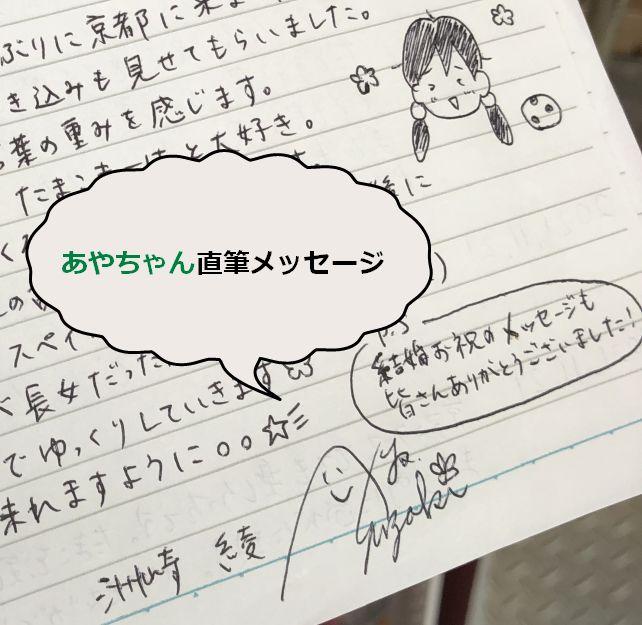 ぶりに京都に来
き込みも見せてもらいました。
葉の重みを感じます。
たまこま
と大好き。
後に
あやちゃん直筆メッセージ
スペイ
長女だった
でゆっくりしていきます
来れますように
P.S
結婚お祝のメッセージも
皆さんありがとうございました!
洲崎 綾
Aya Suzaki